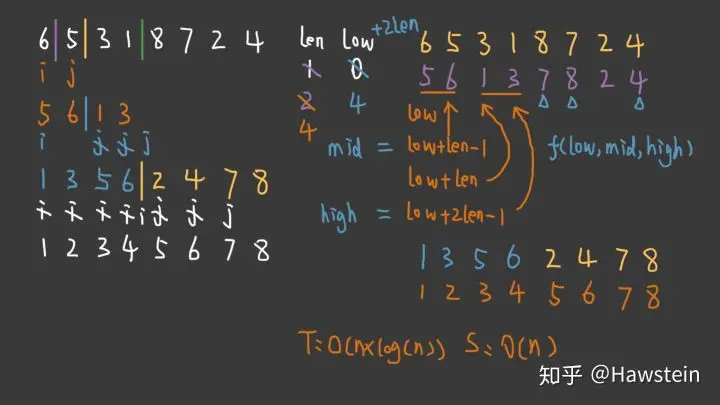 6 5 3 1 8 7 2 4
i j
5 6 1 3
i j j j
1 3 5 6 2 4 7 8
i i i i i j j j
1 2 3 4 5 6 7 8
len low +2len
1 0
2 4
4
6 5 3 1 8 7 2 4
5 6 1 3 7 8 2 4
low
mid = low+len-1
low+len
high = low+2len-1
f(low, mid, high)
1 3 5 6 2 4 7 8
1 2 3 4 5 6 7 8
T: O(n×log(n)) S: O(n)
知乎 @Hawstein